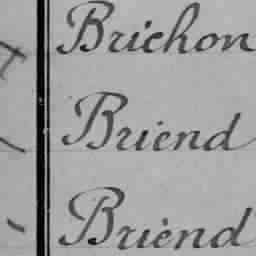 Brichon
Briend
Briend